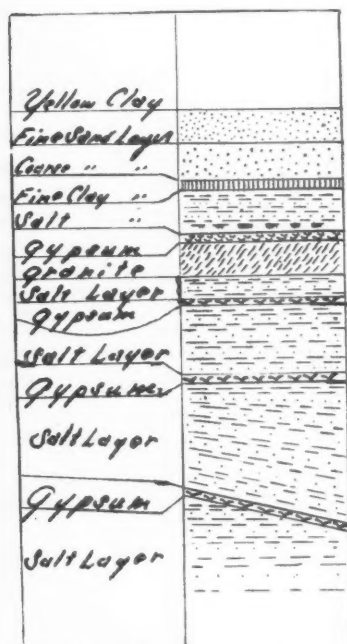 Yellow Clay
Fine Sand Layer
Coarse " "
Fine Clay "
Salt "
Gypsum
granite
Salt Layer
gypsum
Salt Layer
Gypsum
Salt Layer
Gypsum
Salt Layer